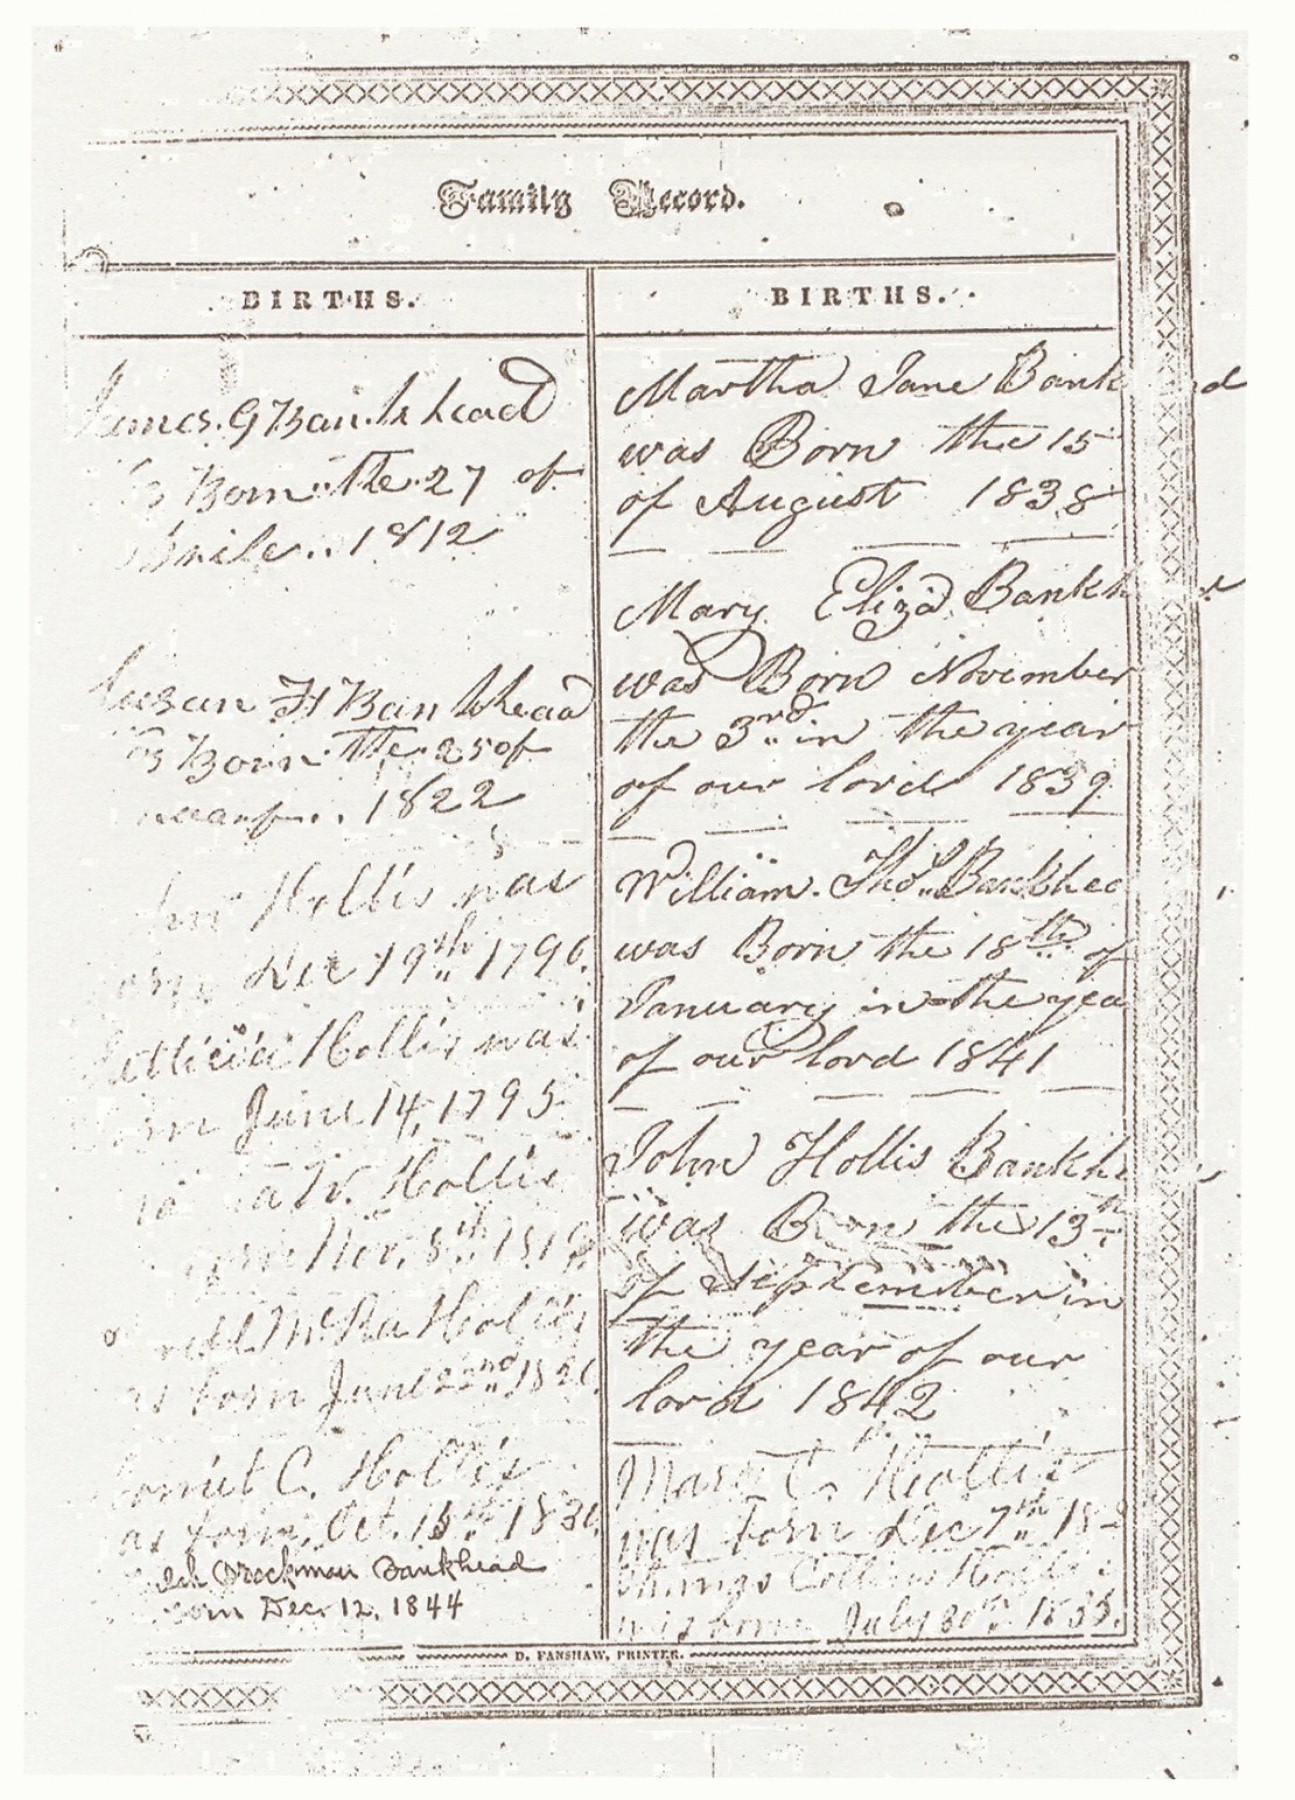 Family Record.
BIRTHS.
James. G Bankhead
Born the 27 of
1812
Susan H Bankhead
Born the 25 of
1822
Hollis was
Dec 19th 1796.
Hollis was
June 14, 1795
W. Hollis
Nov. 5th
McRa Hollis
born June 22nd
C. Hollis
as born, Oct. 15th
Brockman Bankhead
born Dec. 12, 1844
BIRTHS.
Martha Jane Bankhead
was Born the 15
of August 1838
Mary Eliza Bankh
was Born November
the 3rd in the year
of our lord 1839
William. Thos Bankhea
was Born the 18th of
January in the yea
of our lord 1841
John Hollis Bankhe
was Born the 13th
of September in
the year of our
lord 1842
Mary C. Hollis
was born Dec 7th
Thomas Collins Hollis
was born July 30th 1835.
D. FANSHAW, PRINTER.